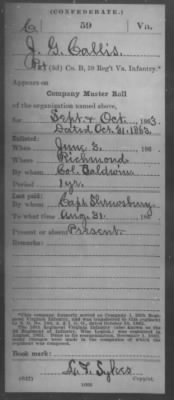 (CONFEDERATE.)
C | 59 | Va.
J. G. Callis
Pvt (3d) Co. B, 59 Reg't Va. Infantry.*
Appears on
Company Muster Roll
of the organization named above,
for Sept & Oct. 1863.
Dated Oct. 31, 1863.
Enlisted:
When June 3, 186
Where Richmond
By whom Col. Baldwin
Period 1 yr.
Last paid:
By whom Capt. Shrewsbury
To what time Aug. 31, 186
Present or absent Present
Remarks:
Book mark:
L. T. Sykes
(642) Copyist.